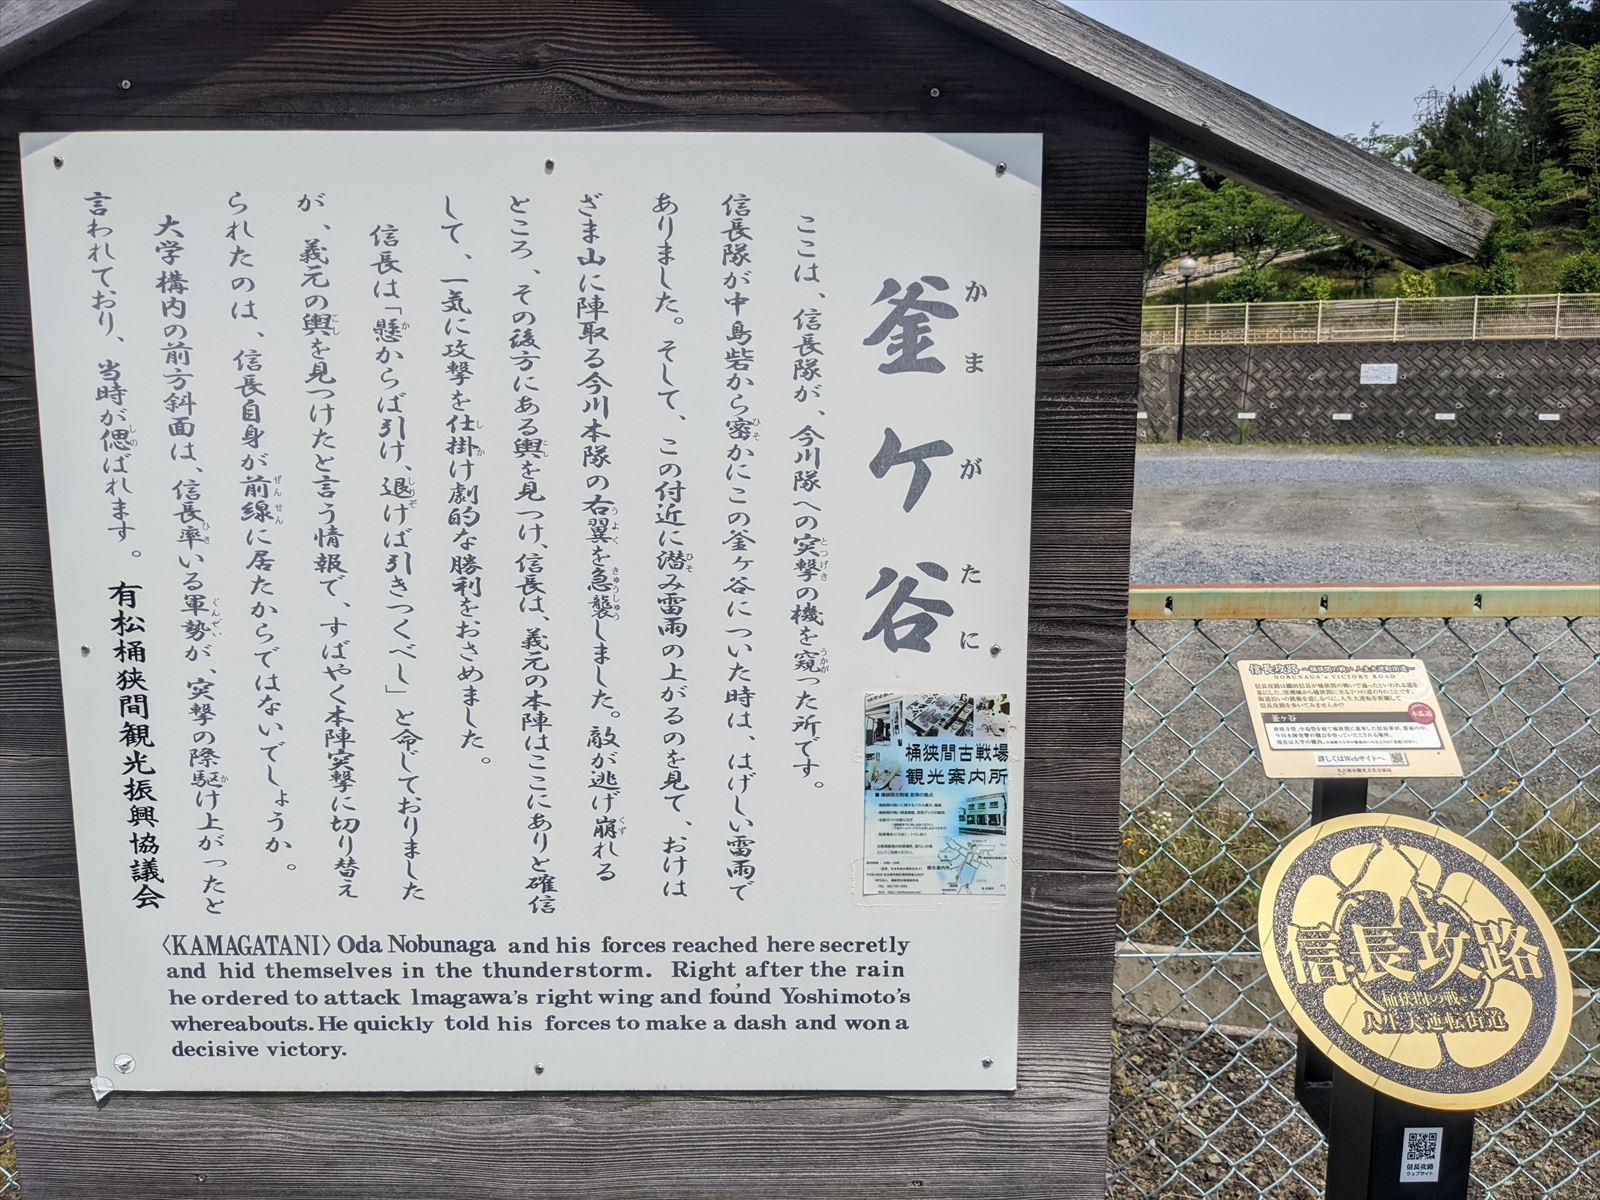 釜ヶ谷
かまがたに
ここは、信長隊が、今川隊への突撃の機を窺った所です。
信長隊が中島砦から密かにこの釜ヶ谷についた時は、はげしい雷雨で
ありました。そして、この付近に潜み雷雨の上がるのを見て、おけは
ざま山に陣取る今川本隊の右翼を急襲しました。敵が逃げ崩れる
ところ、その後方にある輿を見つけ、信長は、義元の本陣はここにありと確信
して、一気に攻撃を仕掛け劇的な勝利をおさめました。
信長は「懸からば引け、退けば引きつくべし」と命じておりました
が、義元の輿を見つけたと言う情報で、すばやく本陣突撃に切り替え
られたのは、信長自身が前線に居たからではないでしょうか。
大学構内の前方斜面は、信長率いる軍勢が、突撃の際駆け上がったと
言われており、当時が偲ばれます。
有松桶狭間観光振興協議会
〈KAMAGATANI〉Oda Nobunaga and his forces reached here secretly
and hid themselves in the thunderstorm. Right after the rain
he ordered to attack lmagawa's right wing and found Yoshimoto's
whereabouts. He quickly told his forces to make a dash and won a
decisive victory.
桶狭間古戦場
観光案内所
信長攻路 ～桶狭間の戦い 人生大逆転街道～
NOBUNAGA's VICTORY ROAD
釜ヶ谷
詳しくはWebサイトへ
信長攻路
桶狭間の戦い
人生大逆転街道
信長攻路
ウェブサイト